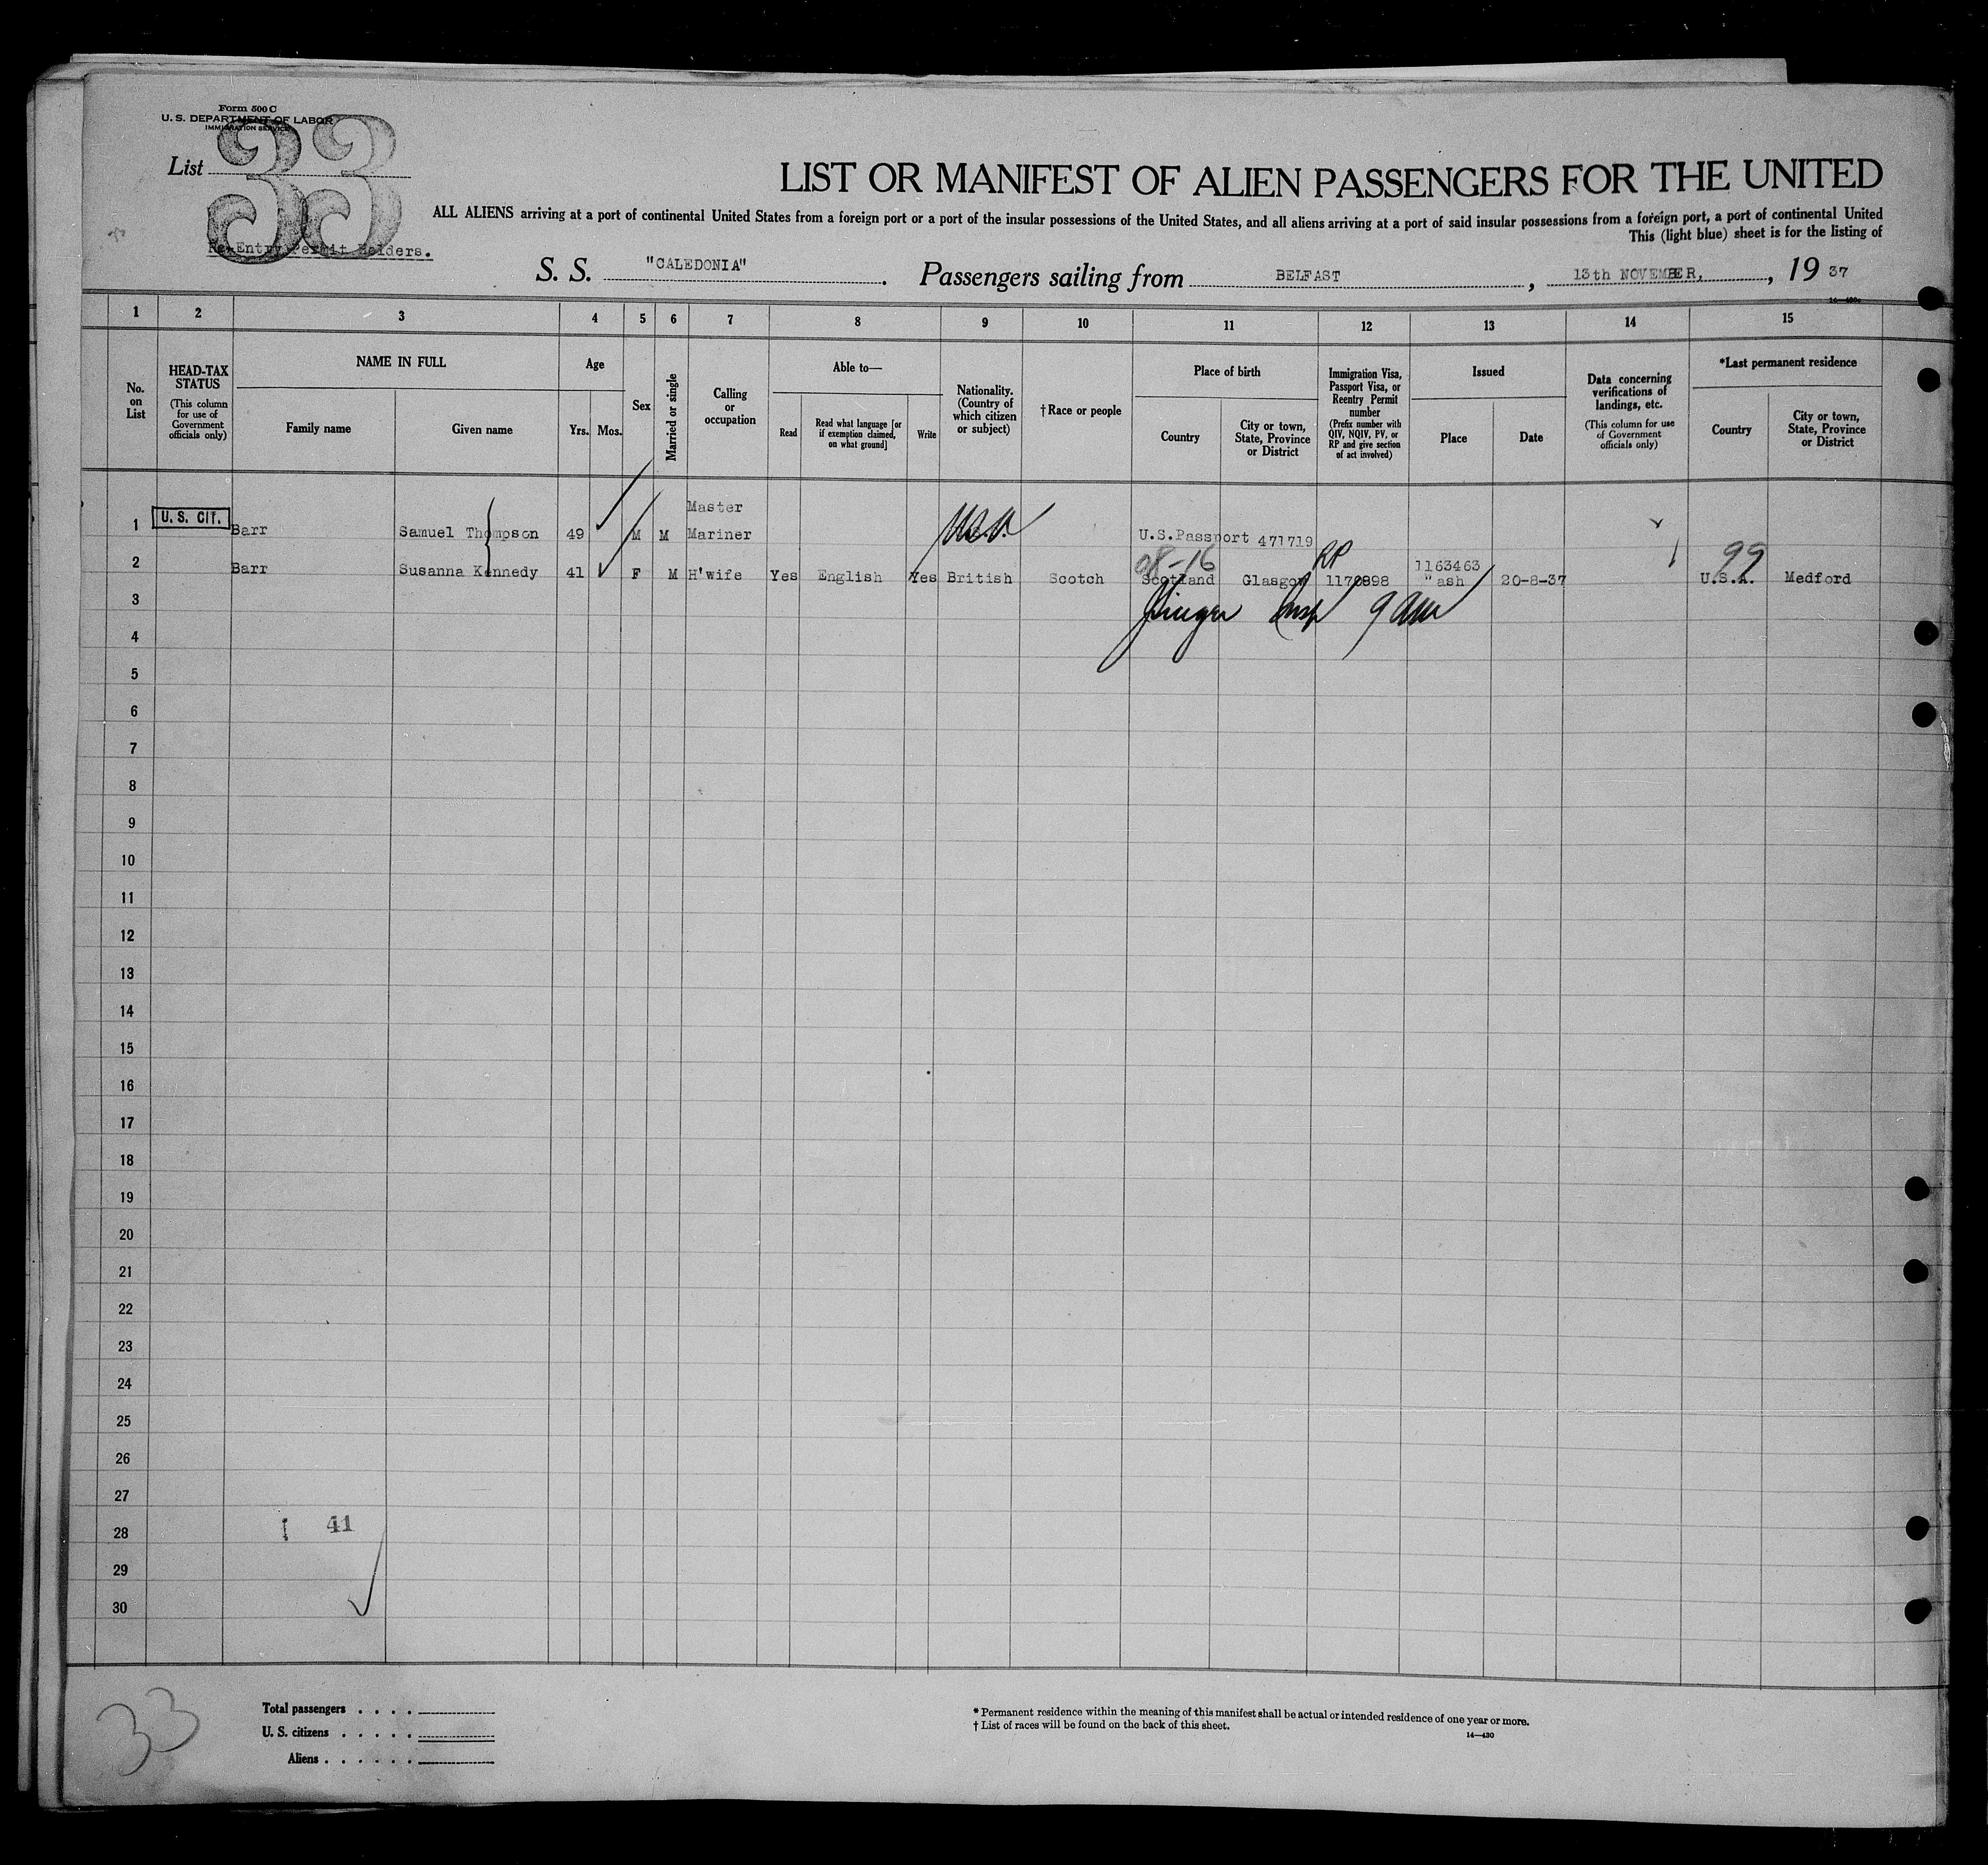 Form 500 C
U. S. DEPARTMENT OF LABOR
IMMIGRATION SERVICE
List 33
Re-Entry Permit Holders.
LIST OR MANIFEST OF ALIEN PASSENGERS FOR THE UNITED
ALL ALIENS arriving at a port of continental United States from a foreign port or a port of the insular possessions of the United States, and all aliens arriving at a port of said insular possessions from a foreign port, a port of continental United
This (light blue) sheet is for the listing of
S. S. "CALEDONIA". Passengers sailing from BELFAST, 13th NOVEMBER, , 19 37
1 2 3 4 5 6 7 8 9 10 11 12 13 14 15
No. on List
HEAD-TAX STATUS
(This column for use of Government officials only)
NAME IN FULL
Family name
Given name
Age
Yrs. Mos.
Sex
Married or single
Calling or occupation
Able to—
Read
Read what language [or if exemption claimed, on what ground]
Write
Nationality. (Country of which citizen or subject)
† Race or people
Place of birth
Country
City or town, State, Province or District
Immigration Visa, Passport Visa, or Reentry Permit number
(Prefix number with QIV, NQIV, PV, or RP and give section of act involved)
Issued
Place
Date
Data concerning verifications of landings, etc.
(This column for use of Government officials only)
*Last permanent residence
Country
City or town, State, Province or District
1 U. S. CIT. Barr Samuel Thompson 49 M M Master Mariner U.S. U.S.Passport 471719
08-16 RP 1163463 99
2 Barr Susanna Kennedy 41 F M H'wife Yes English Yes British Scotch Scotland Glasgow "ash 20-8-37 U.S.A. Medford
3
4
5
6
7
8
9
10
11
12
13
14
15
16
17
18
19
20
21
22
23
24
25
26
27
28 41
29
30
33
Total passengers . . . .
U. S. citizens . . . . .
Aliens . . . . . .
* Permanent residence within the meaning of this manifest shall be actual or intended residence of one year or more.
† List of races will be found on the back of this sheet.
14—430